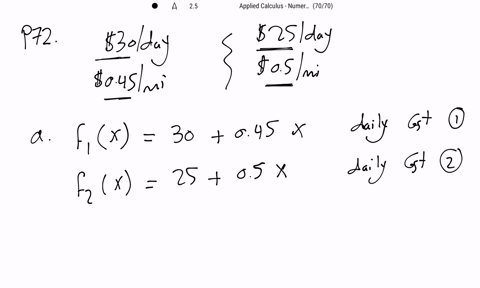 2.5 Applied Calculus - Numer... (70/70)
P72. $30/day $25/day
$0.45/mi $0.5/mi
a. f₁(x) = 30 + 0.45 x daily Cost ①
f₂(x) = 25 + 0.5 x daily Cost ②